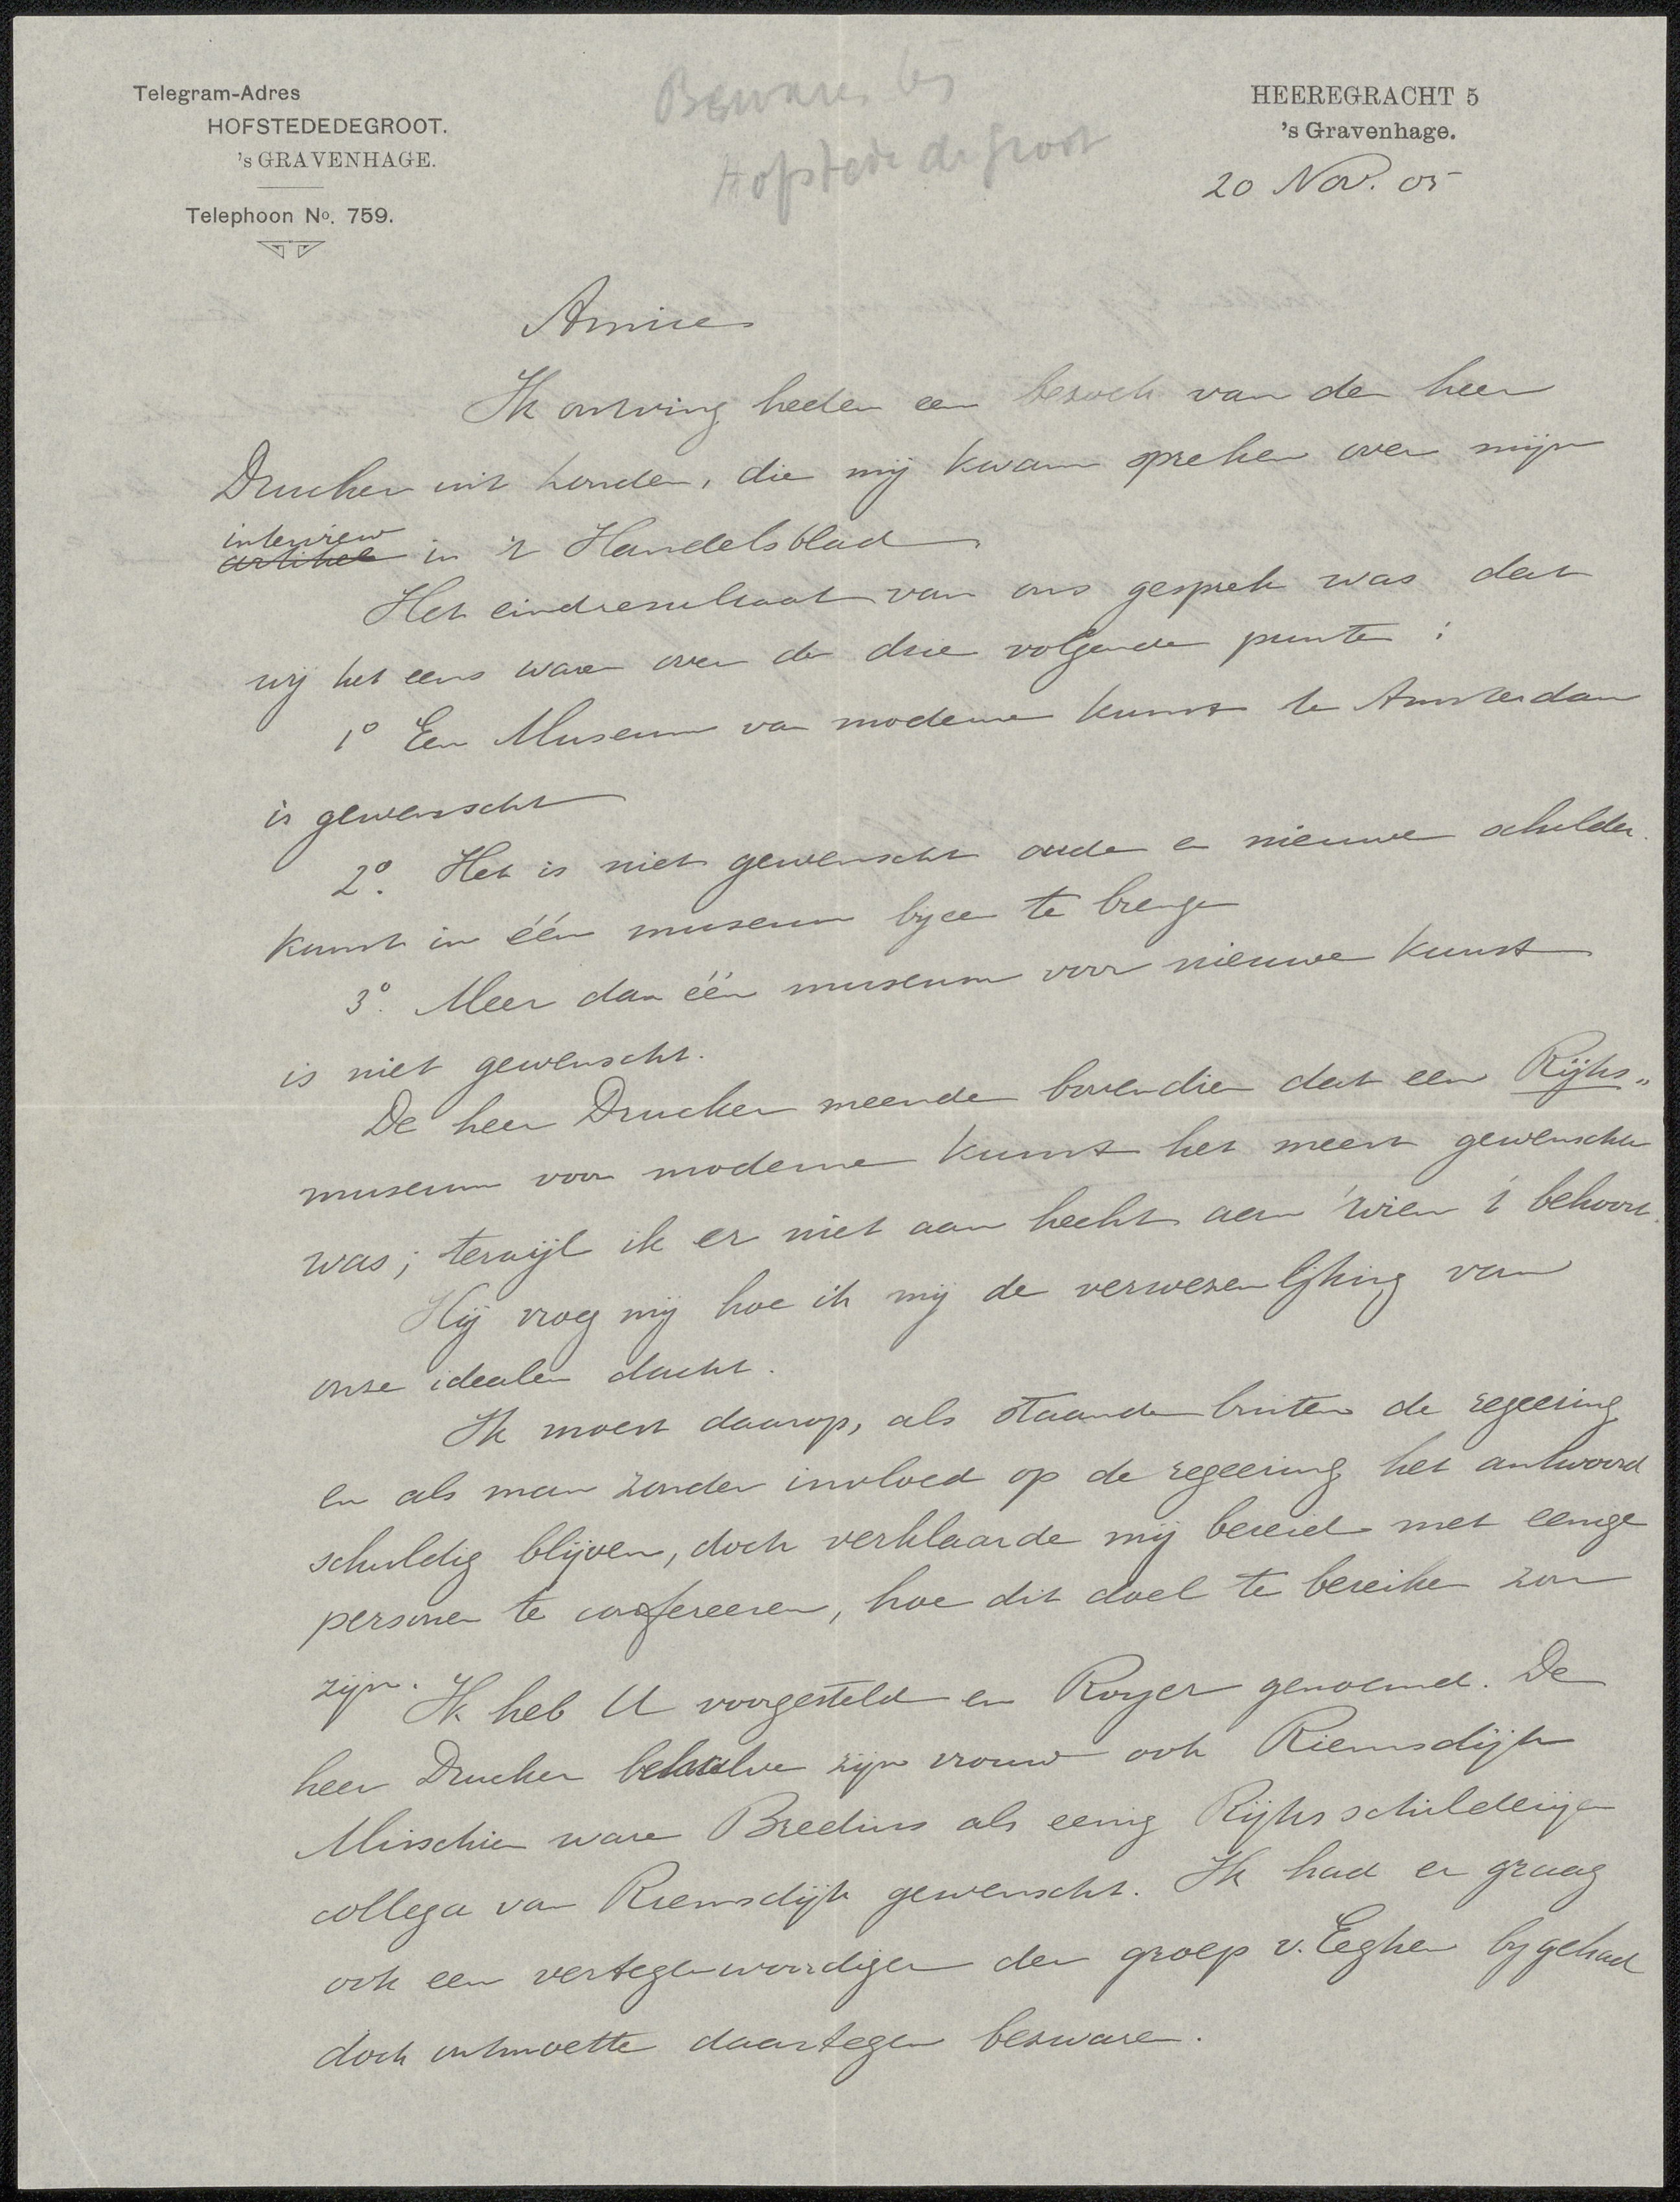 Telegram-Adres
HOFSTEDEDEGROOT.
's GRAVENHAGE.
Telephoon No. 759.
Hofstede de Groot
HEEREGRACHT 5
's Gravenhage.
20 Nov. 05
Amice
Ik ontving heden een bezoek van den heer
Drucker uit Londen, die mij kwam spreken over mijn
interview
artikel in 't Handelsblad
Het eindresultaat van ons gesprek was dat
wij het eens waren over de drie volgende punten :
1o Een Museum van moderne kunst te Amsterdam
is gewenscht
2o. Het is niet gewenscht oude en nieuwe schilder
kunst in één museum bijeen te brengen
3o. Meer dan één museum voor nieuwe kunst
is niet gewenscht.
De heer Drucker meende bovendien dat een Rijks„
museum voor moderne kunst het meest gewenscht
was; terwijl ik er niet aan hecht aan wien 't behoort.
Hij vroeg mij hoe ik mij de verwezenlijking van
onze idealen dacht.
Ik moest daarop, als staande buiten de regeering
en als man zonder invloed op de regeering het antwoord
schuldig blijven, doch verklaarde mij bereid met eenige
personen te confereeren, hoe dit doel te bereiken zou
zijn.
Ik heb U voorgesteld en Royer genoemd. De
heer Drucker behalve zijn vrouw ook Riemsdijk
Misschien ware Bredius als eenig Rijks schilderijen
collega van Riemsdijk gewenscht. Ik had er graag
ook een vertegenwoordiger der groep v. Eeghen bijgehad
doch ontmoette daartegen bezwaren.